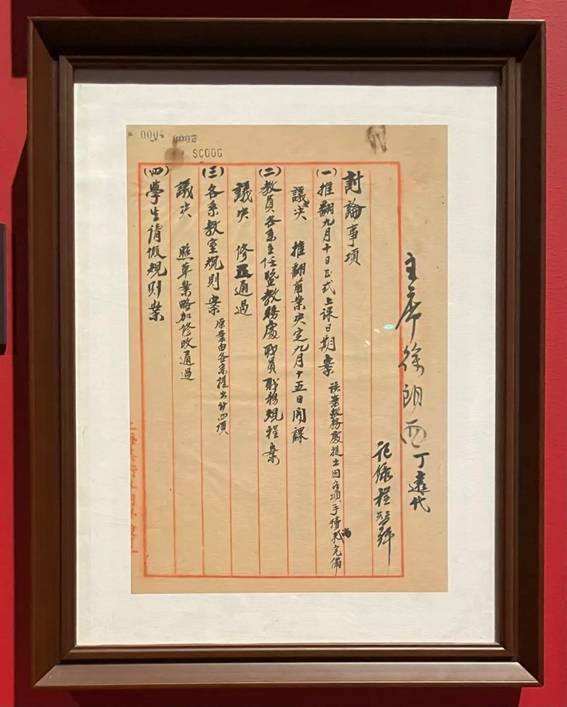 主席徐朗西 丁遠代
記錄程
討論事項
(一)推翻九月十日正式上課日期案 該案教務處提出因各項手續尚未完備
議决 推翻前案决定九月十五日開課
(二)教員各系主任暨教務處職員職務規程案
議决 修正通過
(三)各系教室規則案 原案由各系提出分四項
議决 照草案略加修改通過
(四)學生請假規則案
SC006